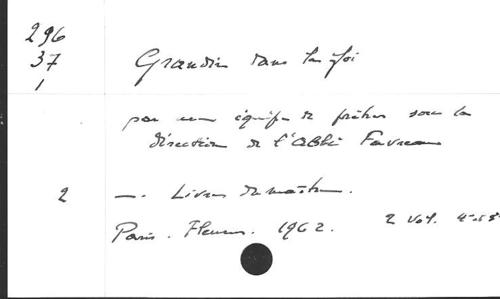 296
37
1
Grandir dans la foi
par une équipe de prêtres sous la
direction de l'abbé Favreau
2 —. Livre du maître.
Paris. Fleurus. 1962. 2 vol.